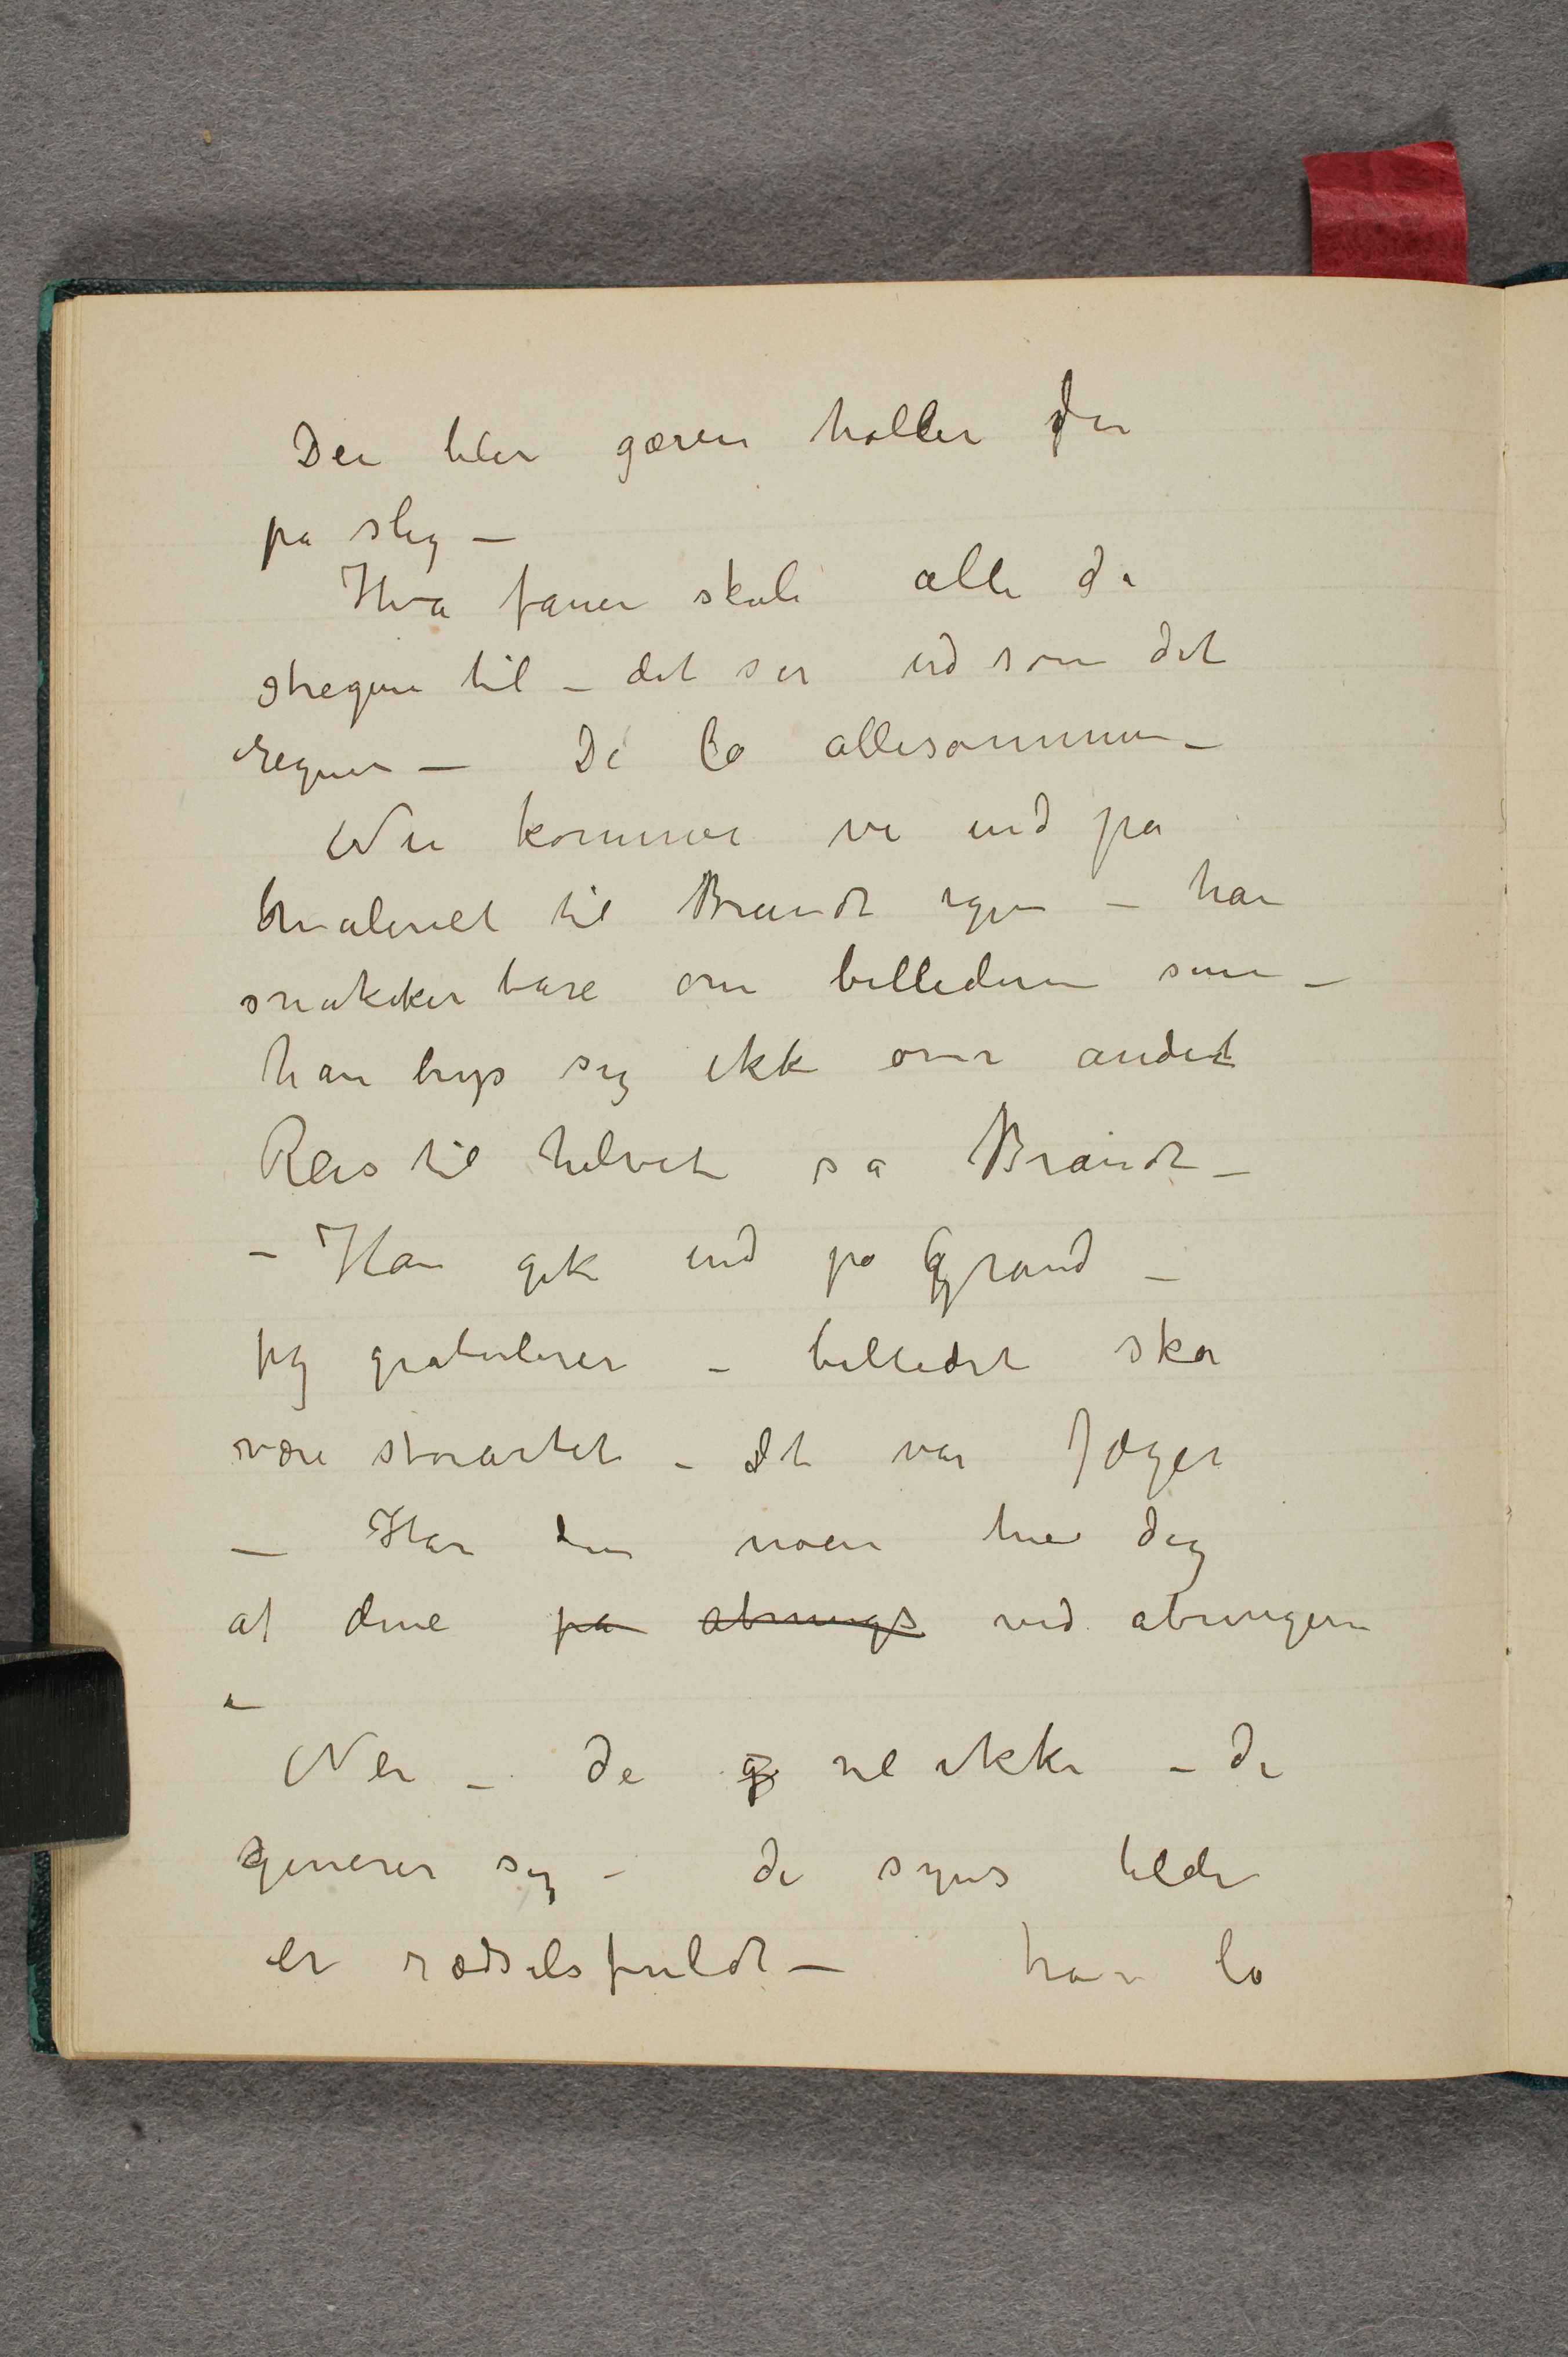 Du blir gæren holler du
på slig –
Hva fanen skal alle di
stregene til – det ser ud som det
regner – De lo allesammen –
Nu kommer vi ind på
maleriet til Brandt igen – han
snakker bare om billederne sine –
han bryr sig ikke om andet
Reis til helvete sa Brandt –
– Han gik ind på Grand –
Jeg gratulerer – billedet skal
være storartet – Det var Jæger
– Har du noen med dig
af dine på åbnings ved åbningen
–
Nei – de g vil ikke – di
generer sig – di synes billede
er rædselsfuldt – han lo